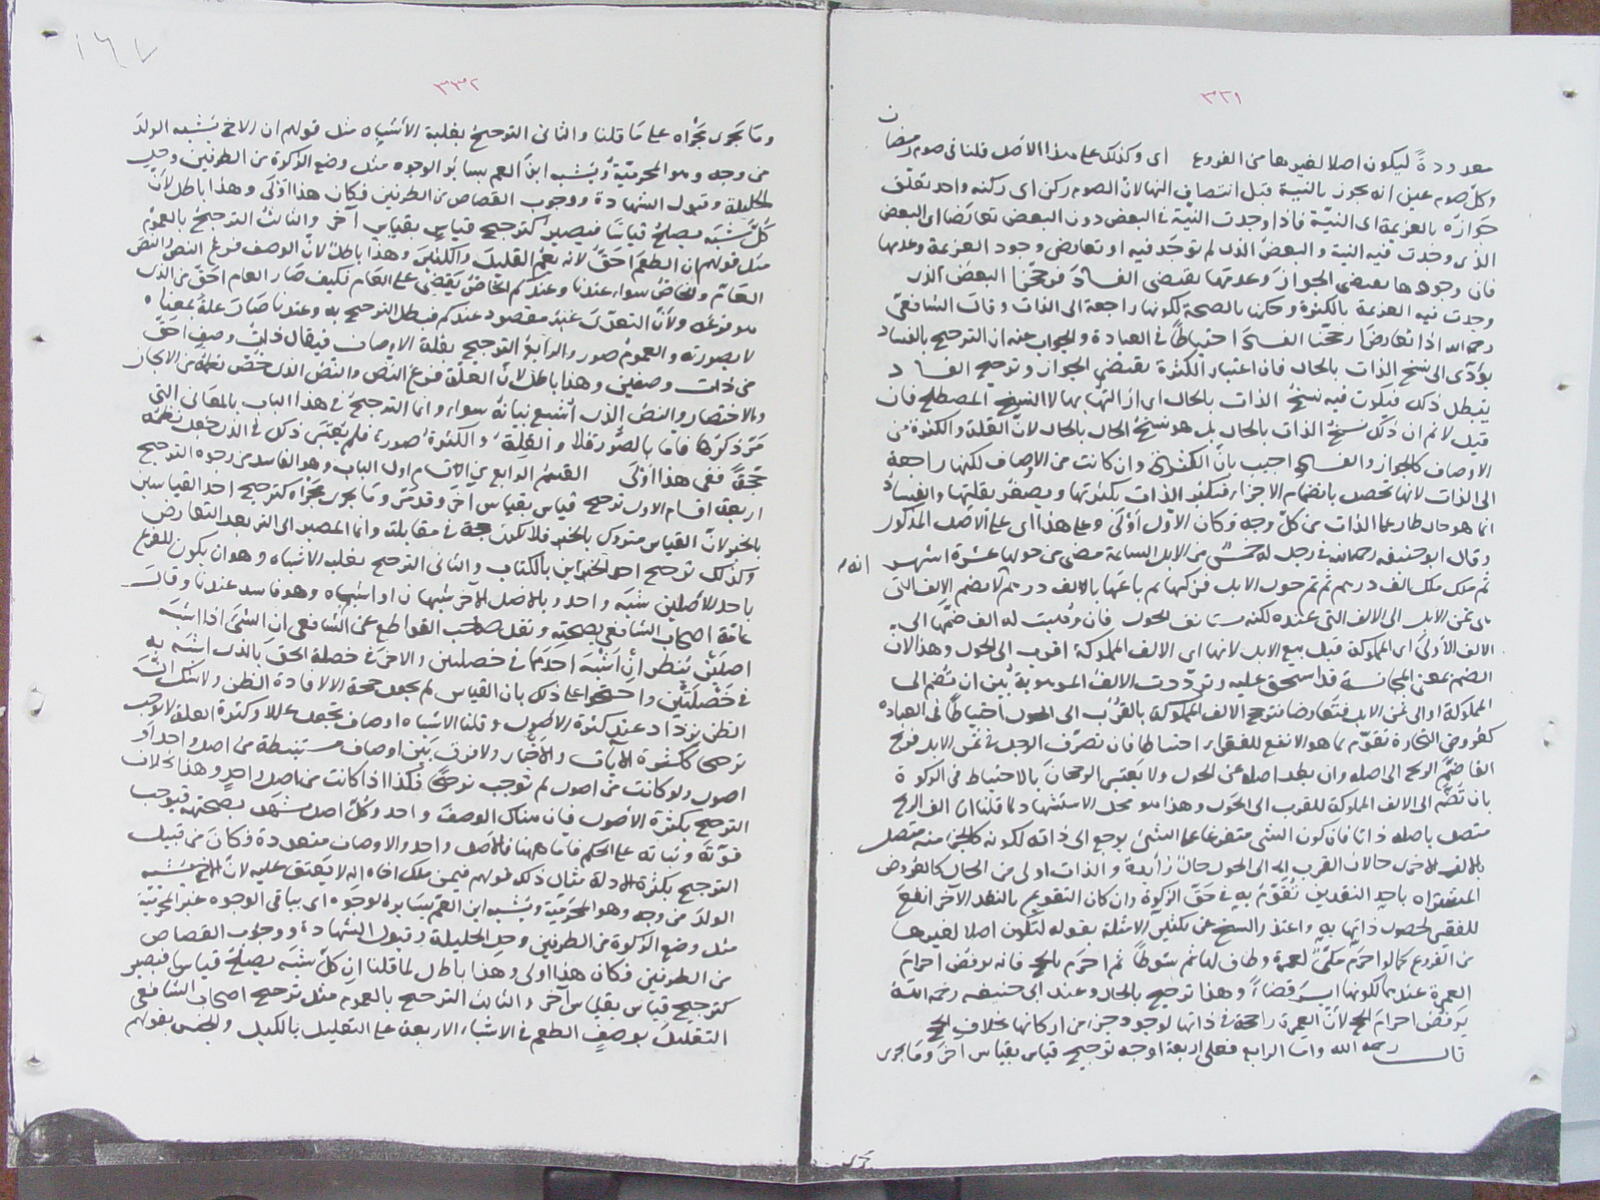 ٣٣١
معدودةً ليكون اصلا لغيرها من الفروع اى وكذلك على هذا الاصل قلنا فى صوم رمضان
وكل صوم عين انه يجوز بالنية قبل انتصاف النهار لان الصوم ركن اى ركنه واحد تعلق
جوازه بالعزيمة اى النية فاذا وجدت النية فى البعض دون البعض تعارضا اى البعض
الذى وجدت فيه النية والبعض الذى لم توجد فيه او تعارض وجود العزيمة وعدمها
فان وجودها يقتضى الجواز وعدمها يقتضى الفساد فرجحنا البعض الذى
وجدت فيه العزيمة بالكثرة وحكمنا بالصحة لكونها راجعة الى الذات وقال الشافعى
رحمه الله اذا تعارضا رجحنا الفساد احتياطاً فى العبادة والجواب عنه ان الترجيح بالفساد
يؤدى الى نسخ الذات بالحال فان اعتبار الكثرة يقتضى الجواز وترجيح الفساد
يبطل ذلك فيكون فيه نسخ الذات بالحال اى ازالتها بها لا النسخ المصطلح فان
قيل لا نم ان ذلك نسخ الذات بالحال بل هو نسخ الحال بالحال لان القلة والكثرة من
الاوصاف كالجواز والفساد اجيب بان الكثرة وان كانت من الاوصاف لكنها راجعة
الى الذات لانها تحصل بانضمام الاجزاء فيكثر الذات بكثرتها ويصغر بقلتها والفساد
انما هو حال طار على الذات من كل وجه فكان الاول اولى وعلى هذا اى على الاصل المذكور
وقال ابو حنيفة رحمه الله فى رجل له خمس من الابل السائمة مضى من حولها عشرة اشهر
ثم ملك الف درهم ثم تم حول الابل فزكيها ثم باعها بالف درهم انه لا يضم الالف التى
هى ثمن الابل الى الالف التى عنده لكنه يستانف الحول فان وهبت له الف ضمها الى
الالف الاولى اى المملوكة قبل بيع الابل لانها اى الالف المملوكة اقرب الى الحول وهذا لان
الضم بمعنى المجانسة قد استحق عليه وترددت الالف الموهوبة بين ان تضم الى
المملوكة او الى ثمن الابل فتعارضا فترجح الالف المملوكة بالقرب الى الحول احتياطاً فى العبادة
كعروض التجارة تقوم بما هو الانفع للفقراء احتياطا فان تصرف الرجل فى ثمن الابل فربح
الفا ضم الربح الى اصله وان بعد اصله عن الحول ولا يعتبر الرجحان بالاحتياط فى الزكوة
بان تضم الى الالف المملوكة للقرب الى الحول وهذا هو محل الاستشهاد لما قلنا ان الف الربح
متصل باصله ذاتا فان كون الشئ متفرعا على الشئ يرجع الى ذاته لكونه كالجزء منه متصل
بالالف الاخرى حالا لان القرب الى الحول حال زائدة والذات اولى من الحال كالعروض
المشتراه باحد النقدين تقوم به فى حق الزكوة وان كان التقويم بالنقد الاخر انفع
للفقير لحصول ذاتها به واعتذر الشيخ عن تكثير الامثلة بقوله لتكون اصلا لغيرها
من الفروع كما لو احرم مكى لعمرة وطاف لها ثم شوطاً ثم احرم بالحج فانه يرفض احرام
العمرة عندهما لكونها ايسر قضاءً وهذا ترجيح بالحال وعند ابى حنيفه رحمه الله
يرفض احرام الحج لان العمرة راجحة فى ذاتها لوجود جزء من اركانها بخلاف الحج
قال رحمه الله واما الرابع فعلى اربعة اوجه ترجيح قياس بقياس اخر وما يجرى
١٦٧
٣٣٢
وما يجرى مجراه على ما قلنا والثانى الترجيح بغلبة الاشباه مثل قولهم ان الاخ يشبه الولد
من وجه وهو المحرمية ويشبه ابن العم بسائر الوجوه مثل وضع الزكوة من الطرفين وحل
الحليلة وقبول الشهادة ووجوب القصاص من الطرفين فكان هذا اولى وهذا باطل لان
كل شبه يصلح قياسا فيصير كترجيح قياس بقياس آخر والثالث الترجيح بالعموم
مثل قولهم ان الطعم احق لانه يعم القليل والكثير وهذا باطل لان الوصف فرع النص والنص
العام والخاص سواء عندنا وعندكم الخاص يقضى على العام فكيف صار العام احق من الذى
هو فرعه ولان التعدى غير مقصود عندكم فبطل الترجيح به وعندنا صار علة بمعناه
لا بصورته والعموم صورة والرابع الترجيح بقلة الاوصاف فيقال ذات وصف احق
من ذات وصفين وهذا باطل لان العلة فرع النص والنص الذى خص نظمه من الايجاز
والاختصار والنص الذى اشبع بيانه سواء وانما الترجيح فى هذا الباب بالمعانى التى
مر ذكرها فاما بالصور فلا والقلة والكثرة صورة فلم يعتبر ذلك فى الذى جعل نظمه
حجة ففى هذا اولى القسم الرابع من الاقسام اول الباب وهو الفاسد من وجوه الترجيح
اربعة اقسام الاول ترجيح قياس بقياس آخر وقد مر وما يجرى مجراه كترجيح احد القياسين
بالخبر لان القياس متروك بالخبر فلا يكون حجة فى مقابلته وانما المصير الى الترجيح بعد التعارض
وكذلك ترجيح احد الخبرين بالكتاب والثانى الترجيح بغلبة الاشباه وهو ان يكون للفرع
باحد الاصلين شبه واحد وبالاصل الآخر شبهان او اشباه وهو فاسد عندنا وقال
عامة اصحاب الشافعى بصحته ونقل صاحب القواطع عن الشافعى ان الشئ اذا اشبه
اصلين ينظر ان اشبه احدهما فى خصلتين والاخر فى خصلة الحق بالذى اشبه به
فى خصلتين واحتجوا على ذلك بان القياس لم يجعل حجة الا لافادة الظن ولا شك ان
الظن يزداد عند كثرة الاصول وقلنا الاشباه اوصاف تجعل عللا وكثرة العلة لا توجب
ترجيحا ككثرة الآيات والاخبار ولا فرق بين اوصاف مستنبطة من اصل واحد او
اصول ولو كانت من اصول لم توجب ترجيحا فكذا اذا كانت من اصل واحد وهذا بخلاف
الترجيح بكثرة الاصول فان هناك الوصف واحد وكل اصل شهد بصحته فيوجب
قوته وثباته على الحكم فاما ههنا فالاصل واحد والاوصاف متعددة فكان من قبيل
الترجيح بكثرة الادلة مثال ذلك قولهم فيمن ملك اخاه انه لا يعتق عليه لان الاخ يشبه
الولد من وجه وهو المحرمية ويشبه ابن العم بسائر الوجوه اى بباقى الوجوه غير المحرمية
مثل وضع الزكوة من الطرفين وحل الحليلة وقبول الشهادة ووجوب القصاص
من الطرفين فكان هذا اولى وهذا باطل لما قلنا ان كل شبه يصلح قياسا فيصير
كترجيح قياس بقياس آخر والثالث الترجيح بالعموم مثل ترجيح اصحاب الشافعى
التعليل بوصف الطعم فى الاشياء الاربعة على التعليل بالكيل والجنس بقولهم